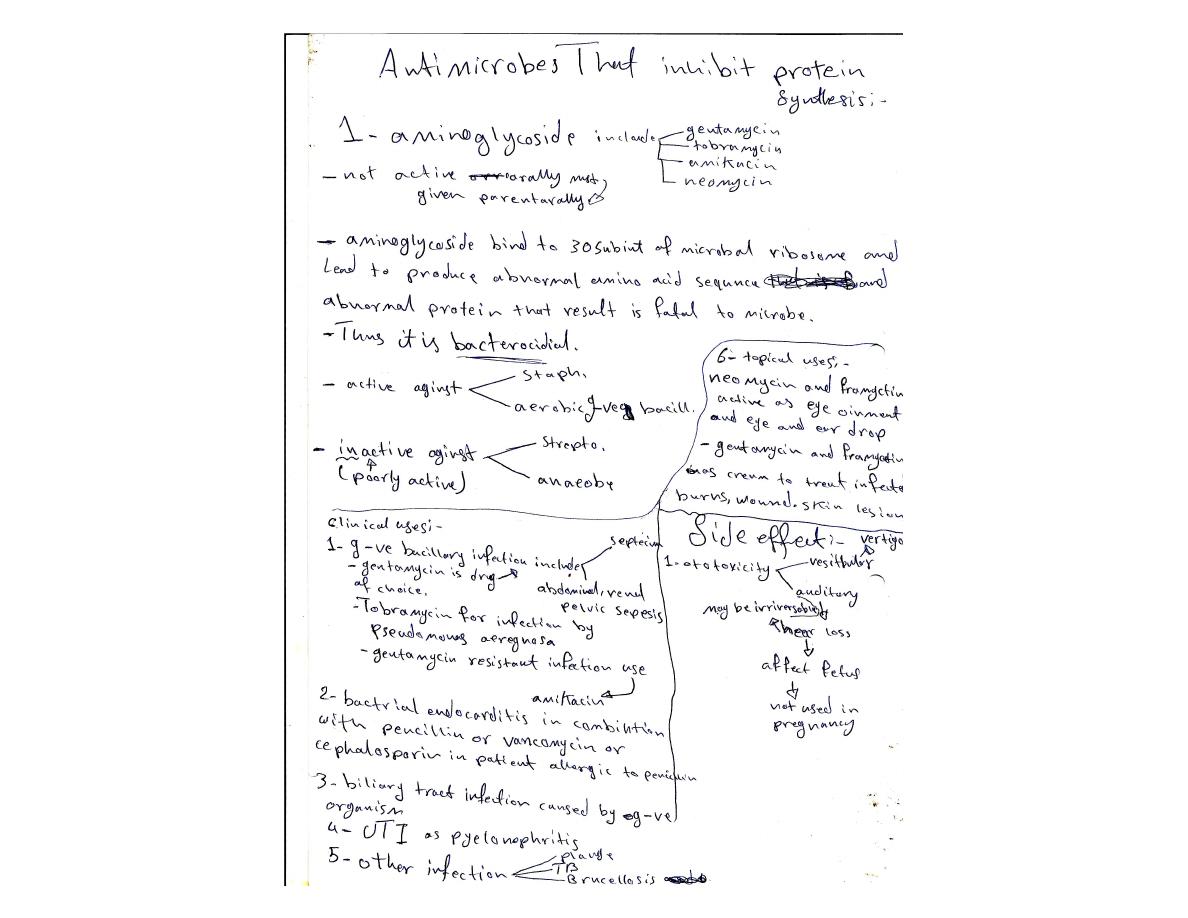 Antimicrobes That inhibit protein
synthesis:-
1- aminoglycoside include
gentamycin
tobramycin
amikacin
neomycin
- not active orally must
given parentarally
- aminoglycoside bind to 30subint of microbal ribosome and
Lead to produce abnormal amino acid sequnce and
abnormal protein that result is fatal to microbe.
- Thus it is bacterocidial.
- active aginst
staph.
aerobic g-ve bacill.
- inactive aginst
(poorly active)
strepto.
anaeobe
6- topical uses:-
neomycin and framyctin
active as eye oinment
and eye and ear drop
- gentamycin and framyctin
as cream to treat infecte
burns, wound. skin lesion
clinical uses:-
1- g-ve bacillary infection include
septecim
abdominal, renal
pelvic sepesis
- gentamycin is drug
of choice.
- Tobramycin for infection by
pseudomonas aeregnosa
- gentamycin resistant infection use
amikacin
2- bactrial endocarditis in combintion
with pencillin or vancomycin or
cephalosporin in patient allergic to penicilin
3- biliary tract infection caused by g-ve
organism
4- UTI as pyelonephritis
5- other infection
plauge
TB
Brucellosis
Side effect:-
1- ototoxicity
vertigo
vesitbular
auditory
may be irriversable
hear loss
affect fetus
not used in
pregnancy